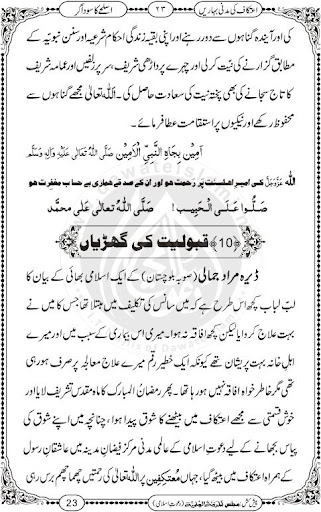 اعتکاف کی مدنی بہاریں ۲۳ اسلحے کا سوداگر
کی اور آیندہ گناہوں سے دور رہنے اور اپنی بقیہ زندگی احکامِ شرعیہ اور سننِ نبویہ کے
مطابق گزارنے کی نیت کی اور چہرے پر داڑھی شریف، سر پر زلفیں اور عمامہ شریف
کا تاج سجانے کی بھی پختہ نیت کی سعادت حاصل کی۔ اللہ تعالٰی مجھے گناہوں سے
محفوظ رکھے اور نیکیوں پر استقامت عطا فرمائے۔
اٰمِیْن بِجَاہِ النَّبِیِّ الْاَمِیْن صَلَّی اللہُ تَعَالٰی عَلَیْہِ وَاٰلِہٖ وَسَلَّم
اللہ عَزَّوَجَلَّ کی امیرِ اہلسنّت پر رَحمت ہو اور ان کے صدقے ہماری بے حساب مغفِرت ہو
صَلُّوا عَلَی الْحَبِیب! صَلَّی اللہُ تعالٰی علٰی محمَّد
﴿10﴾ قبولیت کی گھڑیاں
ڈیرہ مراد جمالی (صوبہ بلوچستان) کے ایک اسلامی بھائی کے بیان کا
لبِّ لباب کچھ اس طرح ہے کہ میں سانس کی تکلیف میں مبتلا تھا جس کا میں نے
بہت علاج کروایا لیکن کچھ افاقہ نہ ہوا۔ میری اس بیماری کے سبب میں اور میرے
اہلِ خانہ بہت پریشان تھے کیونکہ ایک خطیر رقم میرے علاج معالجہ پر صرف ہو رہی
تھی مگر خاطر خواہ افاقہ نہیں ہو رہا تھا۔ پھر رمضانُ المبارک کا ماہِ مقدس تشریف لایا اور
خوش قسمتی سے مجھے اعتکاف میں بیٹھنے کا شوق پیدا ہوا، چنانچہ میں اپنے شوق کی
پیاس بجھانے کے لیے دعوتِ اسلامی کے عالمی مدنی مرکز فیضانِ مدینہ میں عاشقانِ رسول
کے ہمراہ اعتکاف میں بیٹھ گیا، جہاں مُعتکِفین پر اللہ تعالٰی کی رحمتیں چھما چھم برس رہی
پیش کش: مجلس اَلْمَدِیْنَۃُ الْعِلْمِیَّۃ (دعوتِ اسلامی) 23